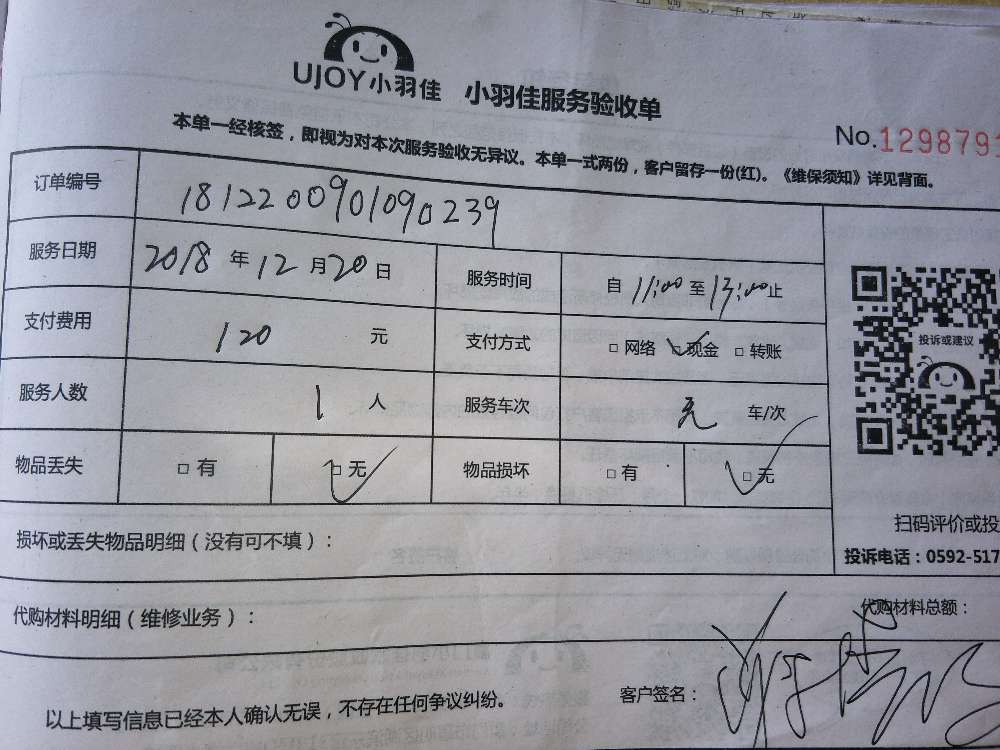 UJOY小羽佳 小羽佳服务验收单
No.1298793
本单一经核签，即视为对本次服务验收无异议。本单一式两份，客户留存一份(红)。《维保须知》详见背面。
订单编号 181220090109 0239
服务日期 2018 年 12 月 20 日 服务时间 自 11:00 至 13:00 止
支付费用 120 元 支付方式 □ 网络 □ 现金 □ 转账
服务人数 1 人 服务车次 无 车/次
物品丢失 □ 有 □ 无 物品损坏 □ 有 □ 无
投诉或建议
扫码评价或投
投诉电话：0592-517
损坏或丢失物品明细（没有可不填）：
代购材料明细（维修业务）： 代购材料总额：
以上填写信息已经本人确认无误，不存在任何争议纠纷。 客户签名：